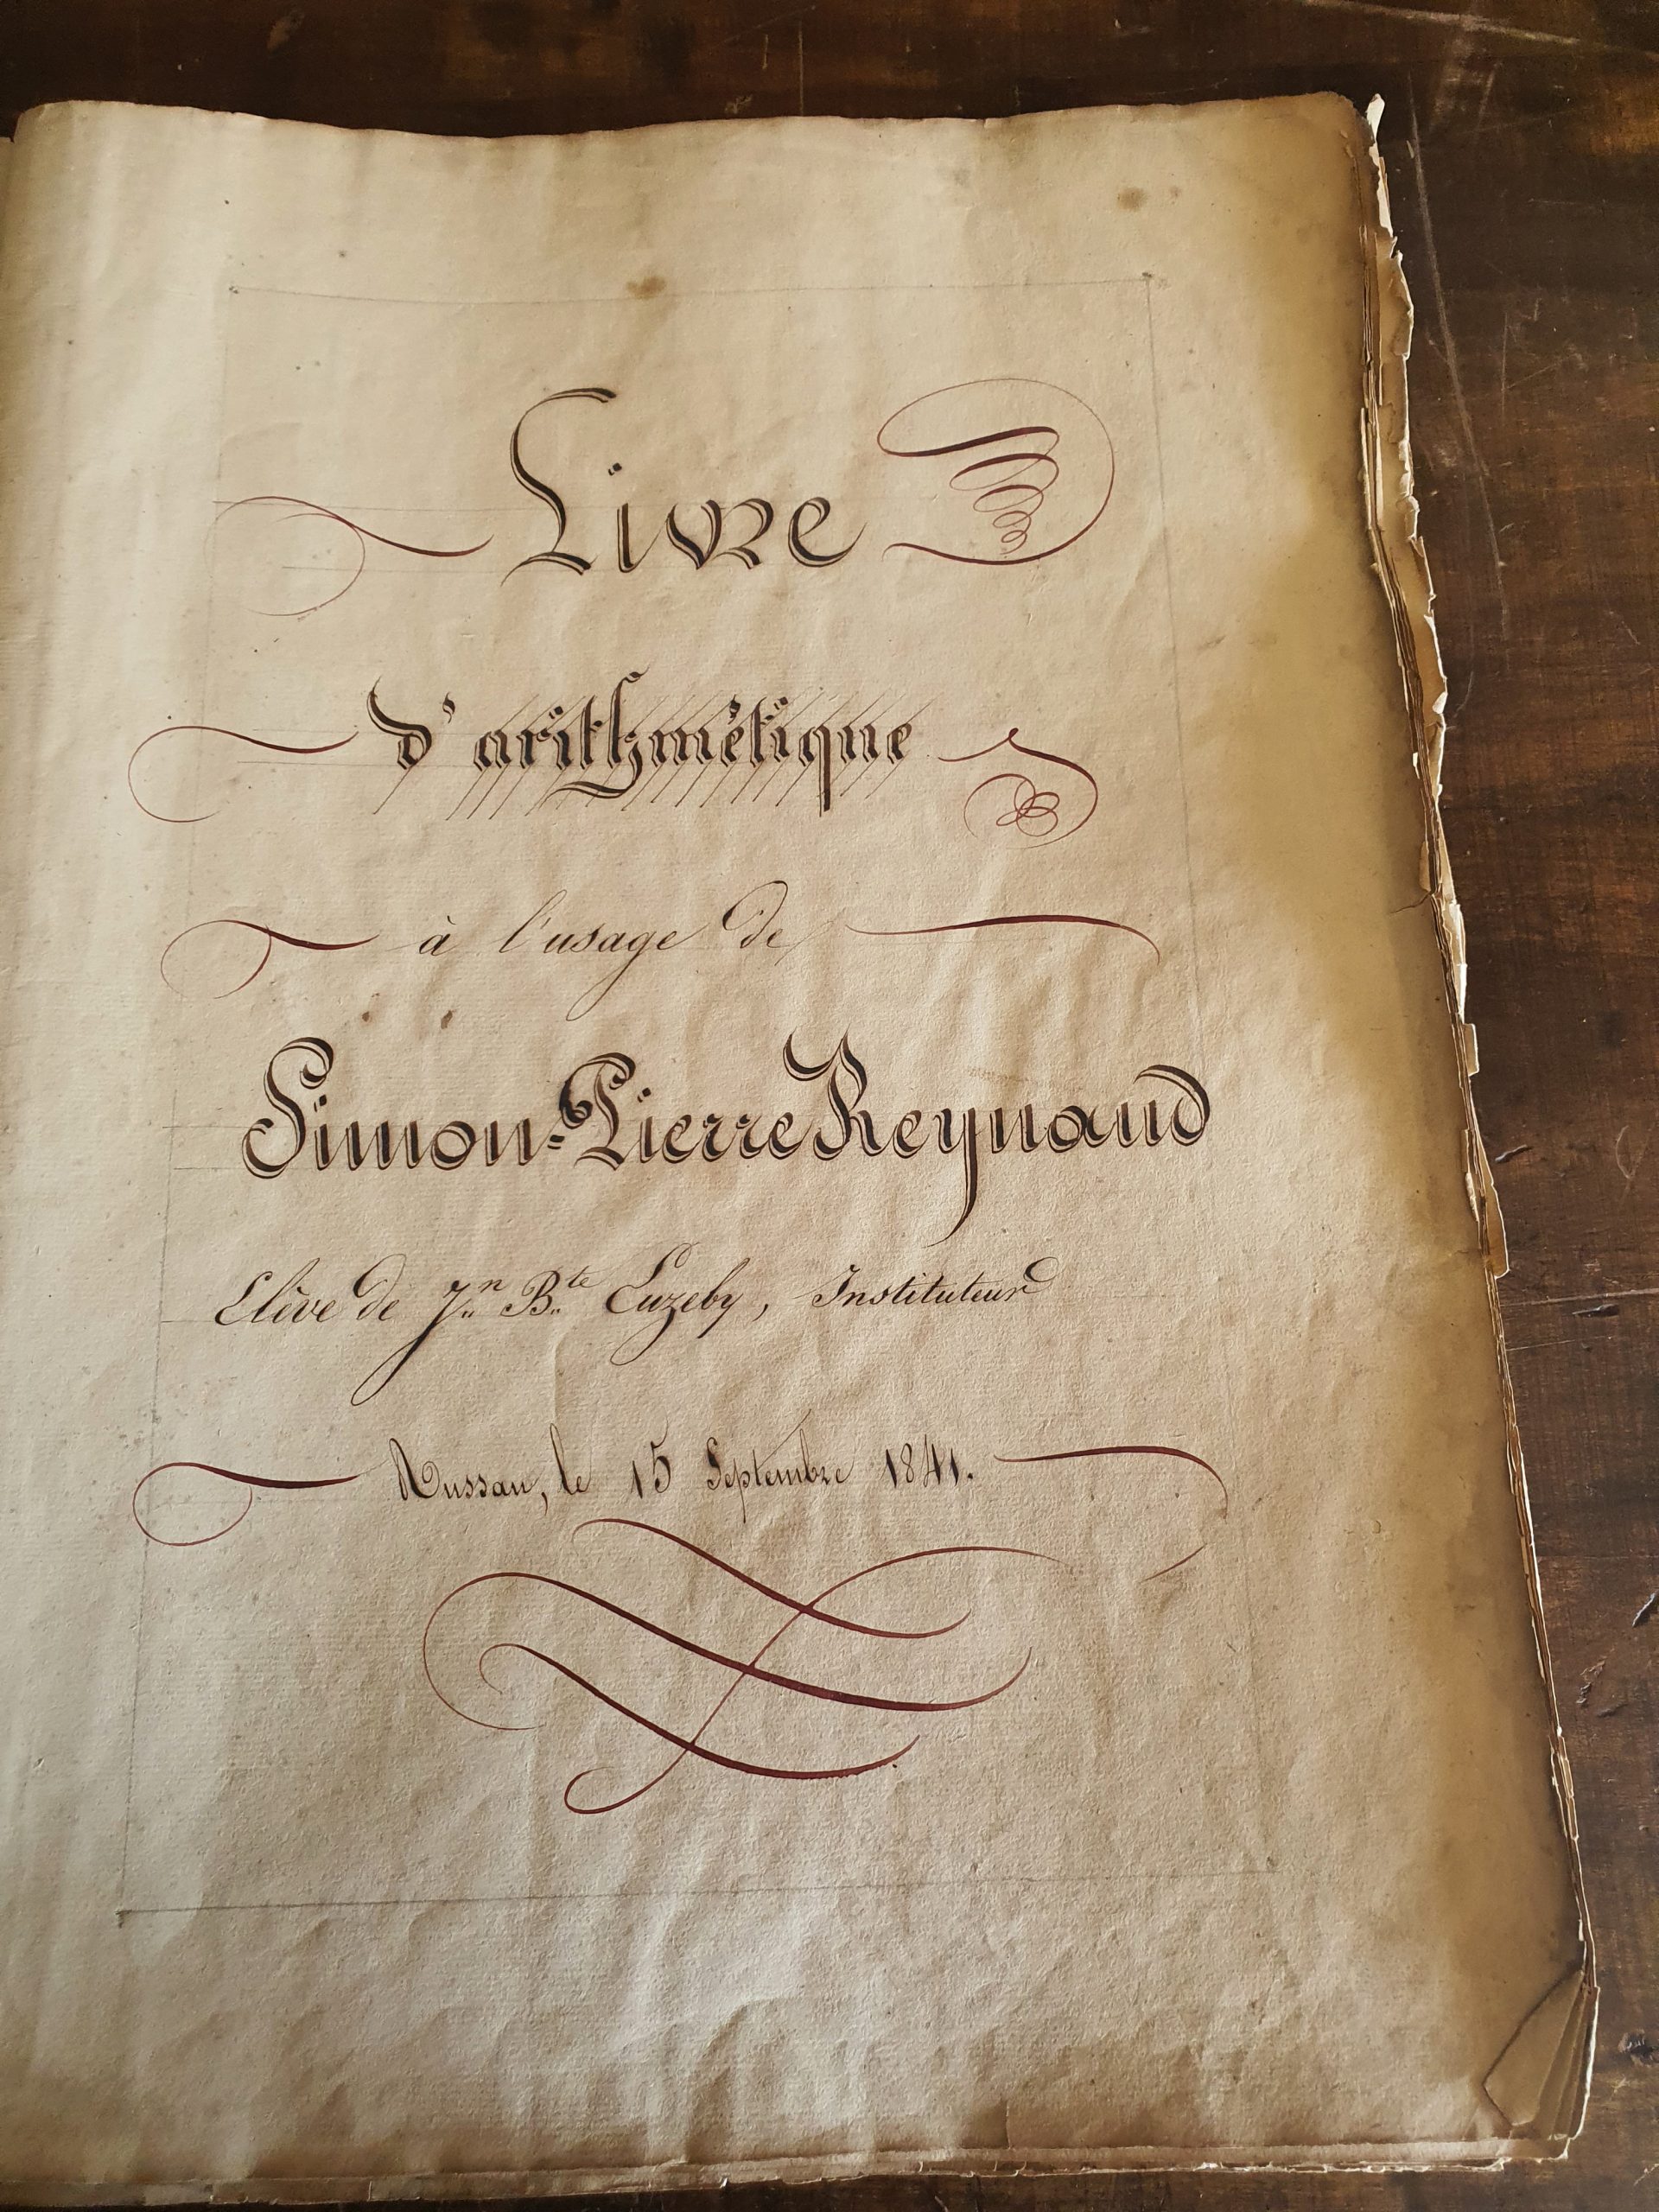 Livre
d'arithmétique
à l'usage de
Simon=Pierre Reynaud
Elève de Jn Bte Euzeby, Instituteur
Mussan, le 15 Septembre 1841.